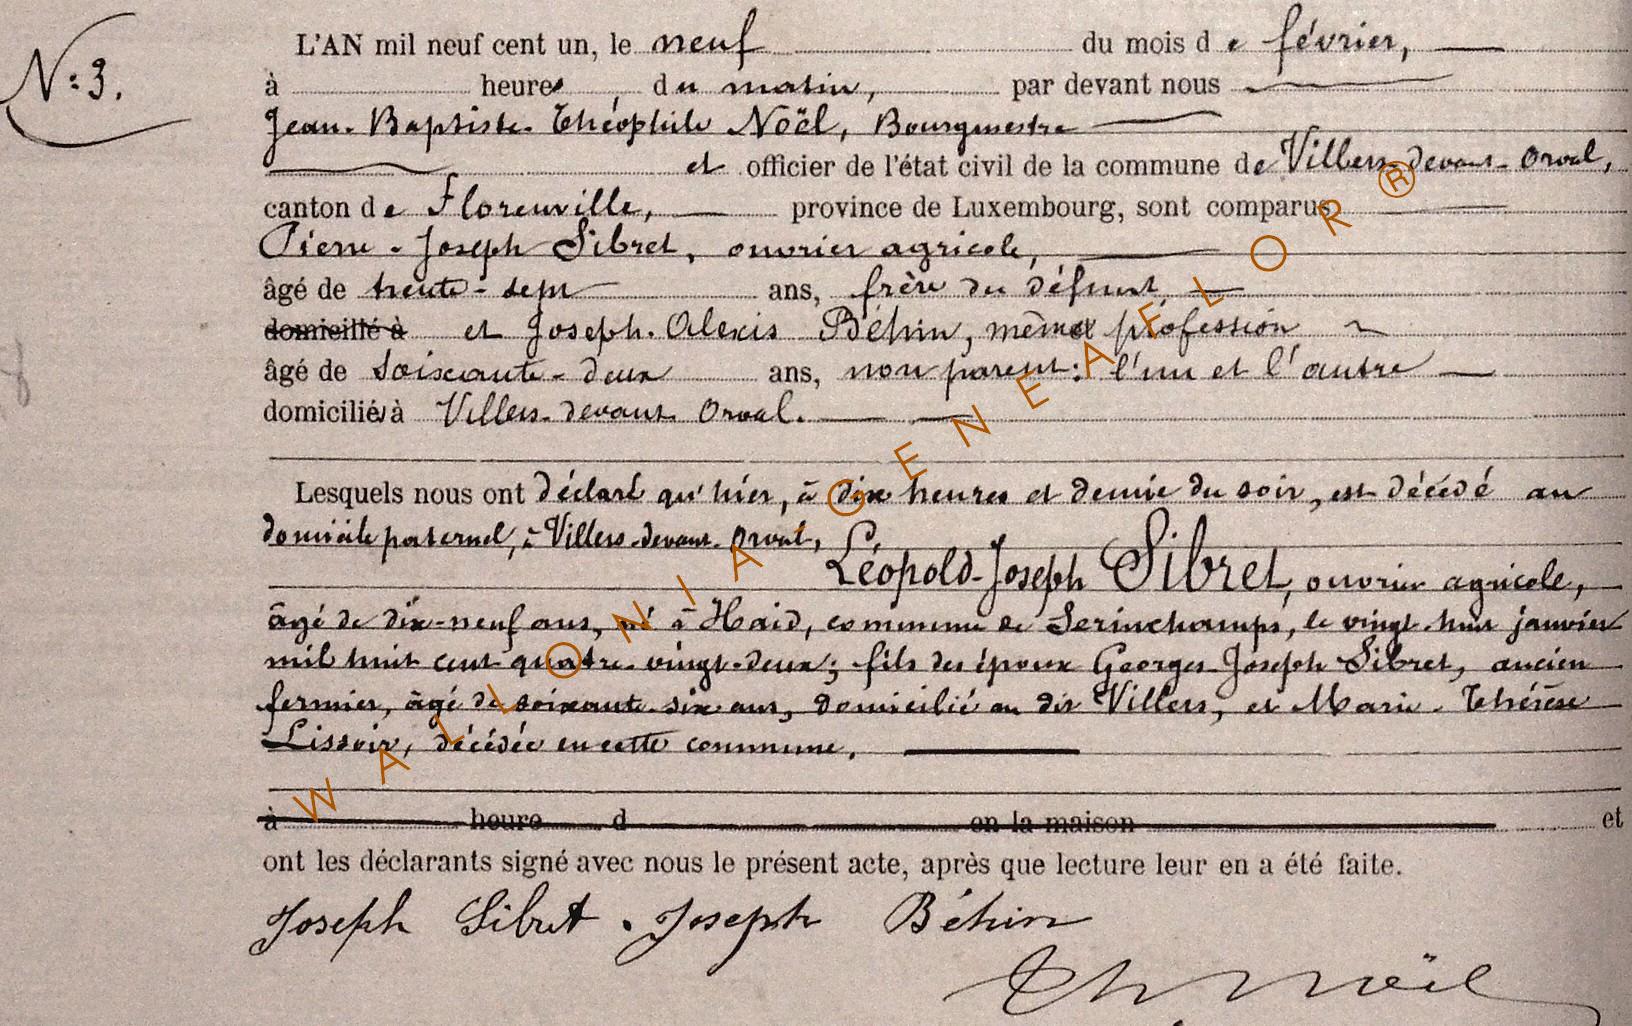 N: 3.
L'AN mil neuf cent un, le neuf du mois de février,
à heures du matin, par devant nous
Jean-Baptiste-Théophile Noël, Bourgmestre
et officier de l'état civil de la commune de Villers-devant-Orval,
canton de Florenville, province de Luxembourg, sont comparus
Pierre-Joseph Sibret, ouvrier agricole,
âgé de trente-sept ans, frère du défunt
domicilié à et Joseph-Alexis Béhin, même profession
âgé de soixante-deux ans, non parent: l'un et l'autre
domiciliés à Villers-devant Orval.
Lesquels nous ont déclaré qu'hier, à dix heures et demie du soir, est décédé au
domicile paternel, à Villers-devant-Orval,
Léopold-Joseph Sibret, ouvrier agricole,
âgé de dix-neuf ans, né à Haid, commune de Serinchamps, le vingt-huit janvier
mil huit cent quatre-vingt-deux; fils des époux Georges-Joseph Sibret, ancien
fermier, âgé de soixante-six ans, domicilié au dit Villers, et Marie-Thérèse
Lissoir, décédée en cette commune.
à heure d en la maison et
ont les déclarants signé avec nous le présent acte, après que lecture leur en a été faite.
Joseph Sibret. Joseph Béhin
Th Noël
WALLONIA-GENEAFLOR®